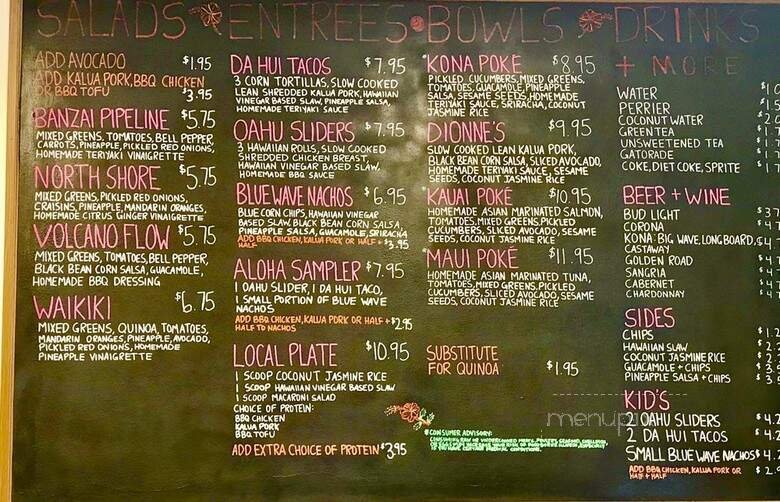 SALADS
ENTREES
BOWLS
DRINKS
ADD AVOCADO $1.95
ADD KALUA PORK, BBQ CHICKEN
OR BBQ TOFU $3.95
BANZAI PIPELINE $5.75
MIXED GREENS, TOMATOES, BELL PEPPER,
CARROTS, PINEAPPLE, PICKLED RED ONIONS,
HOMEMADE TERIYAKI VINAIGRETTE
NORTH SHORE $5.75
MIXED GREENS, PICKLED RED ONIONS,
CRAISINS, PINEAPPLE, MANDARIN ORANGES,
HOMEMADE CITRUS GINGER VINAIGRETTE
VOLCANO FLOW $5.75
MIXED GREENS, TOMATOES, BELL PEPPER,
BLACK BEAN CORN SALSA, GUACAMOLE,
HOMEMADE BBQ DRESSING
WAIKIKI $6.75
MIXED GREENS, QUINOA, TOMATOES,
MANDARIN ORANGES, PINEAPPLE, AVOCADO,
PICKLED RED ONIONS, HOMEMADE
PINEAPPLE VINAIGRETTE
DA HUI TACOS $7.95
3 CORN TORTILLAS, SLOW COOKED
LEAN SHREDDED KALUA PORK, HAWAIIAN
VINEGAR BASED SLAW, PINEAPPLE SALSA,
HOMEMADE TERIYAKI SAUCE
OAHU SLIDERS $7.95
3 HAWAIIAN ROLLS, SLOW COOKED
SHREDDED CHICKEN BREAST,
HAWAIIAN VINEGAR BASED SLAW,
HOMEMADE BBQ SAUCE
BLUE WAVE NACHOS $6.95
BLUE CORN CHIPS, HAWAIIAN VINEGAR
BASED SLAW, BLACK BEAN CORN SALSA,
PINEAPPLE SALSA, GUACAMOLE, SRIRACHA
ADD BBQ CHICKEN, KALUA PORK OR HALF +
HALF $3.95
ALOHA SAMPLER $7.95
1 OAHU SLIDER, 1 DA HUI TACO,
1 SMALL PORTION OF BLUE WAVE
NACHOS
ADD BBQ CHICKEN, KALUA PORK OR HALF +
HALF TO NACHOS $2.95
LOCAL PLATE $10.95
1 SCOOP COCONUT JASMINE RICE
1 SCOOP HAWAIIAN VINEGAR BASED SLAW
1 SCOOP MACARONI SALAD
CHOICE OF PROTEIN:
BBQ CHICKEN
KALUA PORK
BBQ TOFU
ADD EXTRA CHOICE OF PROTEIN $3.95
*KONA POKE $8.95
PICKLED CUCUMBERS, MIXED GREENS,
TOMATOES, GUACAMOLE, PINEAPPLE
SALSA, SESAME SEEDS, HOMEMADE
TERIYAKI SAUCE, SRIRACHA, COCONUT
JASMINE RICE
DIONNE'S $9.95
SLOW COOKED LEAN KALUA PORK,
BLACK BEAN CORN SALSA, SLICED AVOCADO,
HOMEMADE TERIYAKI SAUCE, SESAME
SEEDS, COCONUT JASMINE RICE
*KAUAI POKÉ $10.95
HOMEMADE ASIAN MARINATED SALMON,
TOMATOES, MIXED GREENS, PICKLED
CUCUMBERS, SLICED AVOCADO, SESAME
SEEDS, COCONUT JASMINE RICE
*MAUI POKÉ $11.95
HOMEMADE ASIAN MARINATED TUNA,
TOMATOES, MIXED GREENS, PICKLED
CUCUMBERS, SLICED AVOCADO, SESAME
SEEDS, COCONUT JASMINE RICE
SUBSTITUTE
FOR QUINOA $1.95
*CONSUMER ADVISORY:
+ MORE
WATER
PERRIER
COCONUT WATER
GREEN TEA
UNSWEETENED TEA
GATORADE
COKE, DIET COKE, SPRITE
BEER + WINE
BUD LIGHT
CORONA
KONA: BIG WAVE, LONGBOARD,
CASTAWAY
GOLDEN ROAD
SANGRIA
CABERNET
CHARDONNAY
SIDES
CHIPS
HAWAIIAN SLAW
COCONUT JASMINE RICE
GUACAMOLE + CHIPS
PINEAPPLE SALSA + CHIPS
KID'S
2 OAHU SLIDERS
2 DA HUI TACOS
SMALL BLUE WAVE NACHOS
ADD BBQ CHICKEN, KALUA PORK OR
HALF + HALF